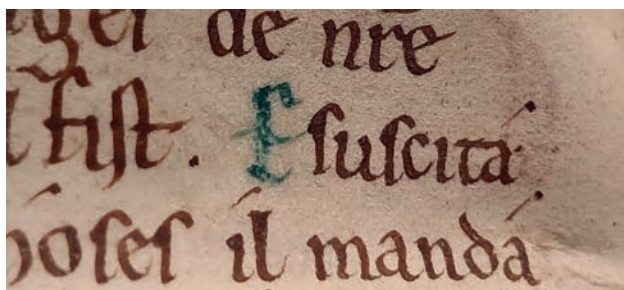 de nre
fist. E suscitá
hoses il mandá